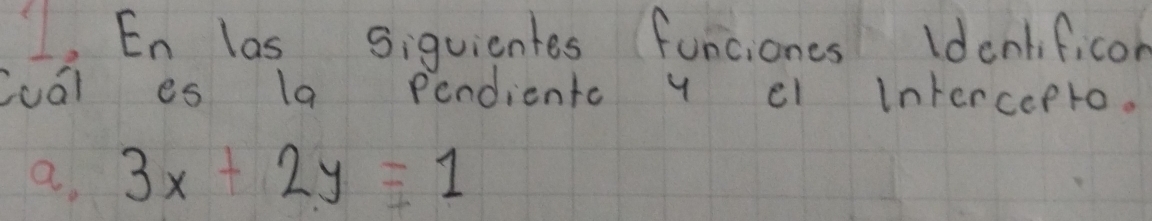 1. En las siguientes funciones Identificar
Cuál es la Pendiente y el Intercepto.
a. 3x + 2y = 1